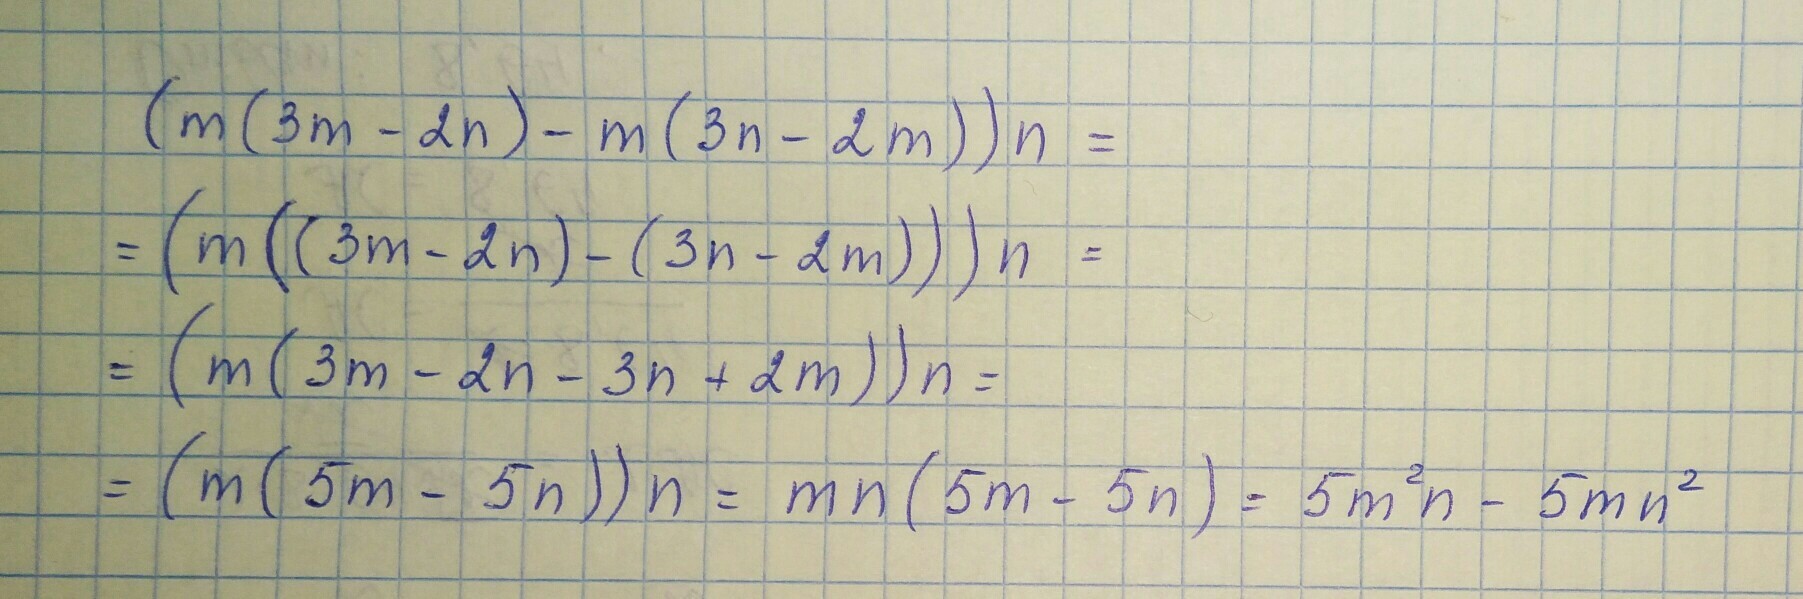 (m(3m - 2n) - m(3n - 2m))n =
= (m((3m - 2n) - (3n - 2m)))n =
= (m(3m - 2n - 3n + 2m))n =
= (m(5m - 5n))n = mn(5m - 5n) = 5m²n - 5mn²